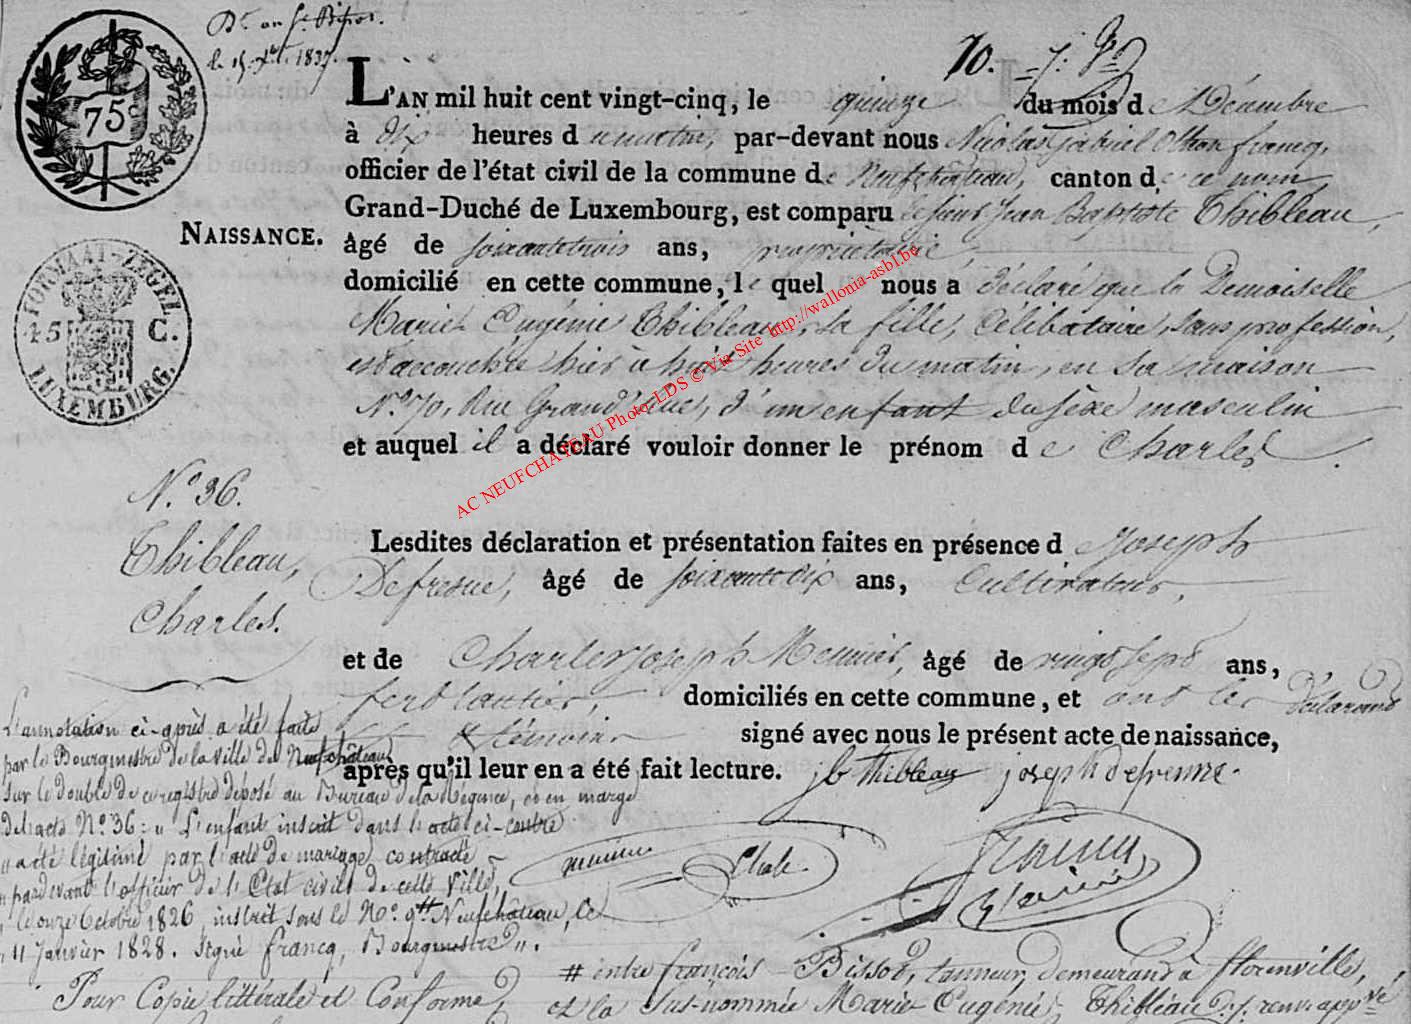 le 15 1837.
75
70.
L'AN mil huit cent vingt-cinq, le quinze du mois de Décembre
à dix heures du matin, par-devant nous Nicolas Gabriel Othon francq,
officier de l'état civil de la commune de Neufchateau, canton de ce nom
Grand-Duché de Luxembourg, est comparu le Sieur Jean Baptiste Thibleau,
NAISSANCE.
âgé de soixantetrois ans, propriétaire,
domicilié en cette commune, lequel nous a déclaré que la Demoiselle
Marie Eugénie Thibleau, sa fille, Célibataire, sans profession,
est accouchée hier à huit heures du matin, en sa maison
No. 70, Rue Grand'Rue, d'un enfant du sèxe masculin
et auquel il a déclaré vouloir donner le prénom de Charles.
FORMAAT-ZEGEL
45 C.
LUXEMBURG.
AC NEUFCHATEAU Photo LDS © Via Site http://wallonia-asbl.be
No. 36.
Thibleau,
Charles.
Lesdites déclaration et présentation faites en présence de Joseph
Defresne, âgé de soixantedix ans, Cultivateur,
et de Charles Joseph Meunier, âgé de vingt sept ans,
ferblantier, domiciliés en cette commune, et ont les déclarant
& témoins signé avec nous le présent acte de naissance,
après qu'il leur en a été fait lecture. jb thibleau joseph defrenne.
meunier Charle
francq
L'annotation ci-après a été faite
par le Bourgmestre de la ville de Neufchâteau
sur le double de ce registre déposé au Bureau de la Régence, et en marge
del'acte No. 36: " L'enfant inscrit dans l'acte ci-contre
" a été légitimé par l'acte de mariage contracté #
" pardevant l'officier de l'Etat civil de cette Ville,
" le onze Octobre 1826, inscrit sous le No. 9 # Neufchâteau, le
" 11 Janvier 1828. signé francq, Bourgmestre".
Pour Copie littérale et Conforme,
# entre françois Bissot, tanneur, demeurant à florenville,
et la sus-nommée Marie Eugénie Thibleau